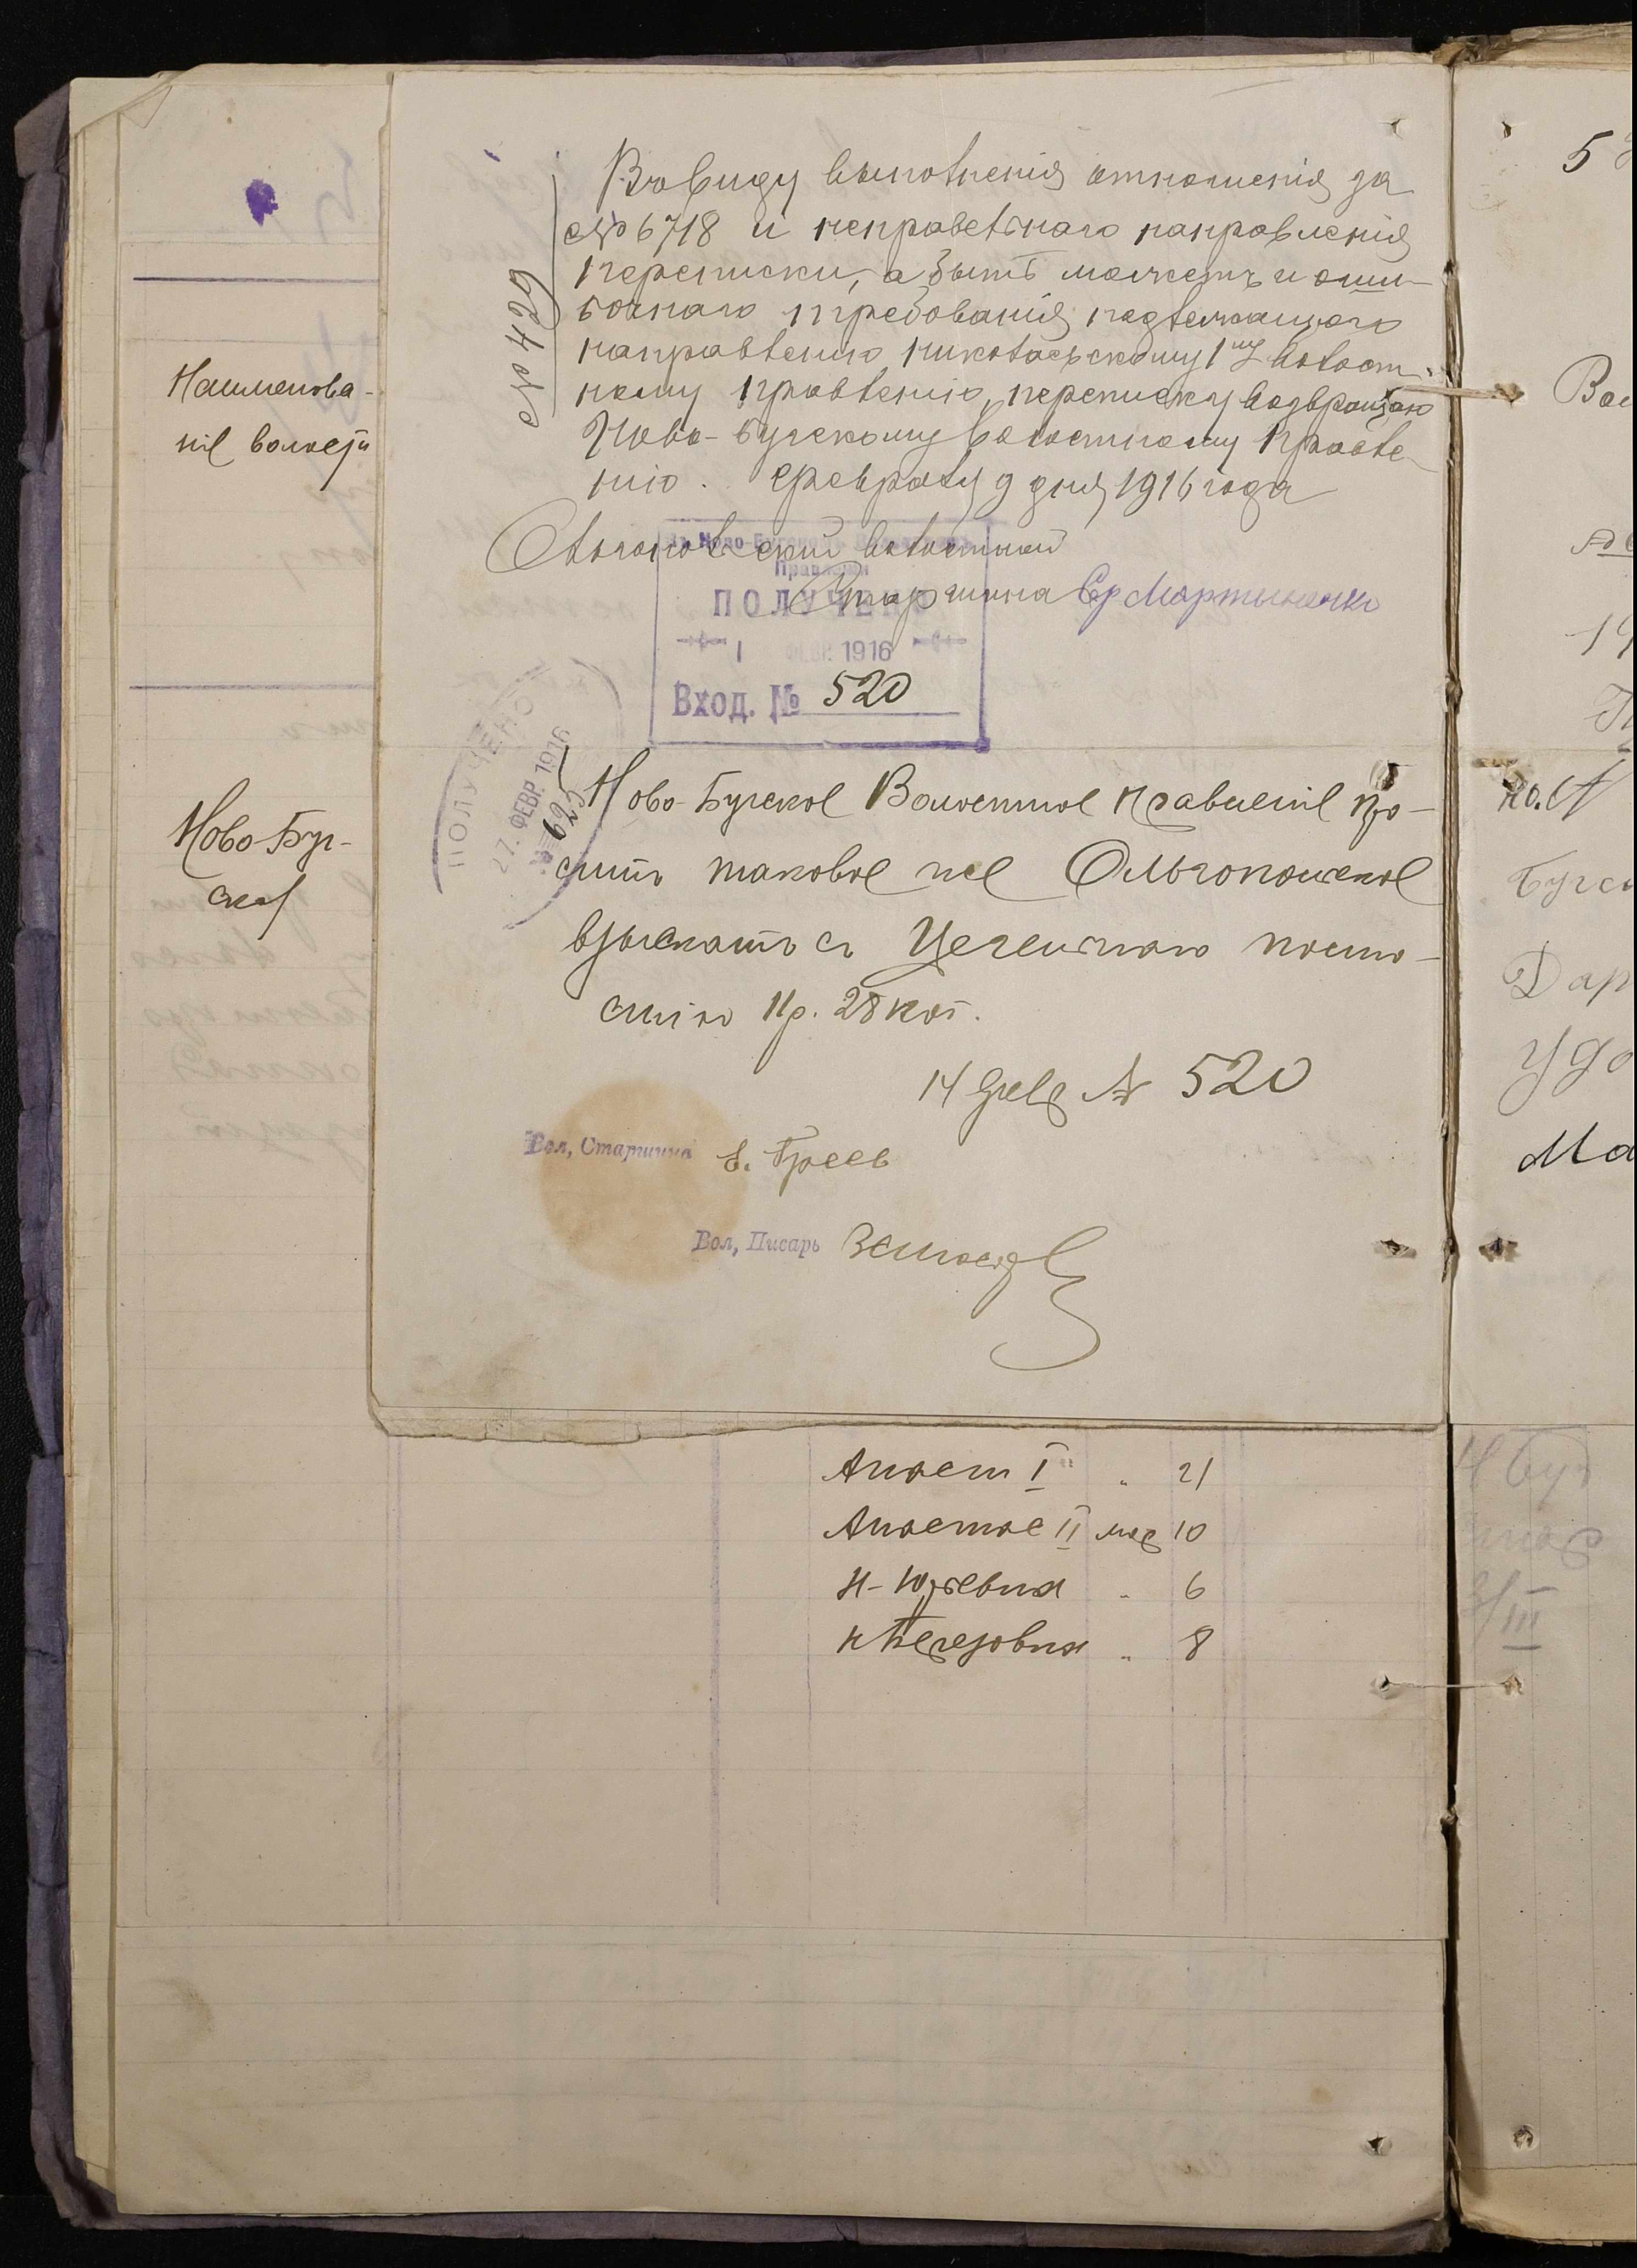 Наименова-
ніе волости
Ново-Буг-
ская
№ 429
Въ виду выполненія отношенія за
№ 6718 и неправельнаго направленія
переписки, а быть можетъ и оши-
бочнаго требованія подлежащаго
направленію Николаевскому 1му волост-
ному правленію, переписку возвращаю
Ново-Бугскому волостному правле-
нію. Февраля 9 дня 1916 года
Ольгопольскій волостной
Старшина Ер Мартыненко
Правленіи
ПОЛУЧЕНО
1 ФЕВР. 1916
Вход. № 520
ПОЛУЧЕНО
27. ФЕВР. 1916
№ 625
Ново-Бугское Волостное Правленіе про-
ситъ таковое же Ольгопольское
взыскать съ
11 р. 28 коп.
14 февр № 520
Вол, Старшина
Вол, Писарь
Апост I " 21
Апостол II мар 10
Н-Юрьевка " 6
" 8
5
19
Бугс
Дар
Удо
Ма
III